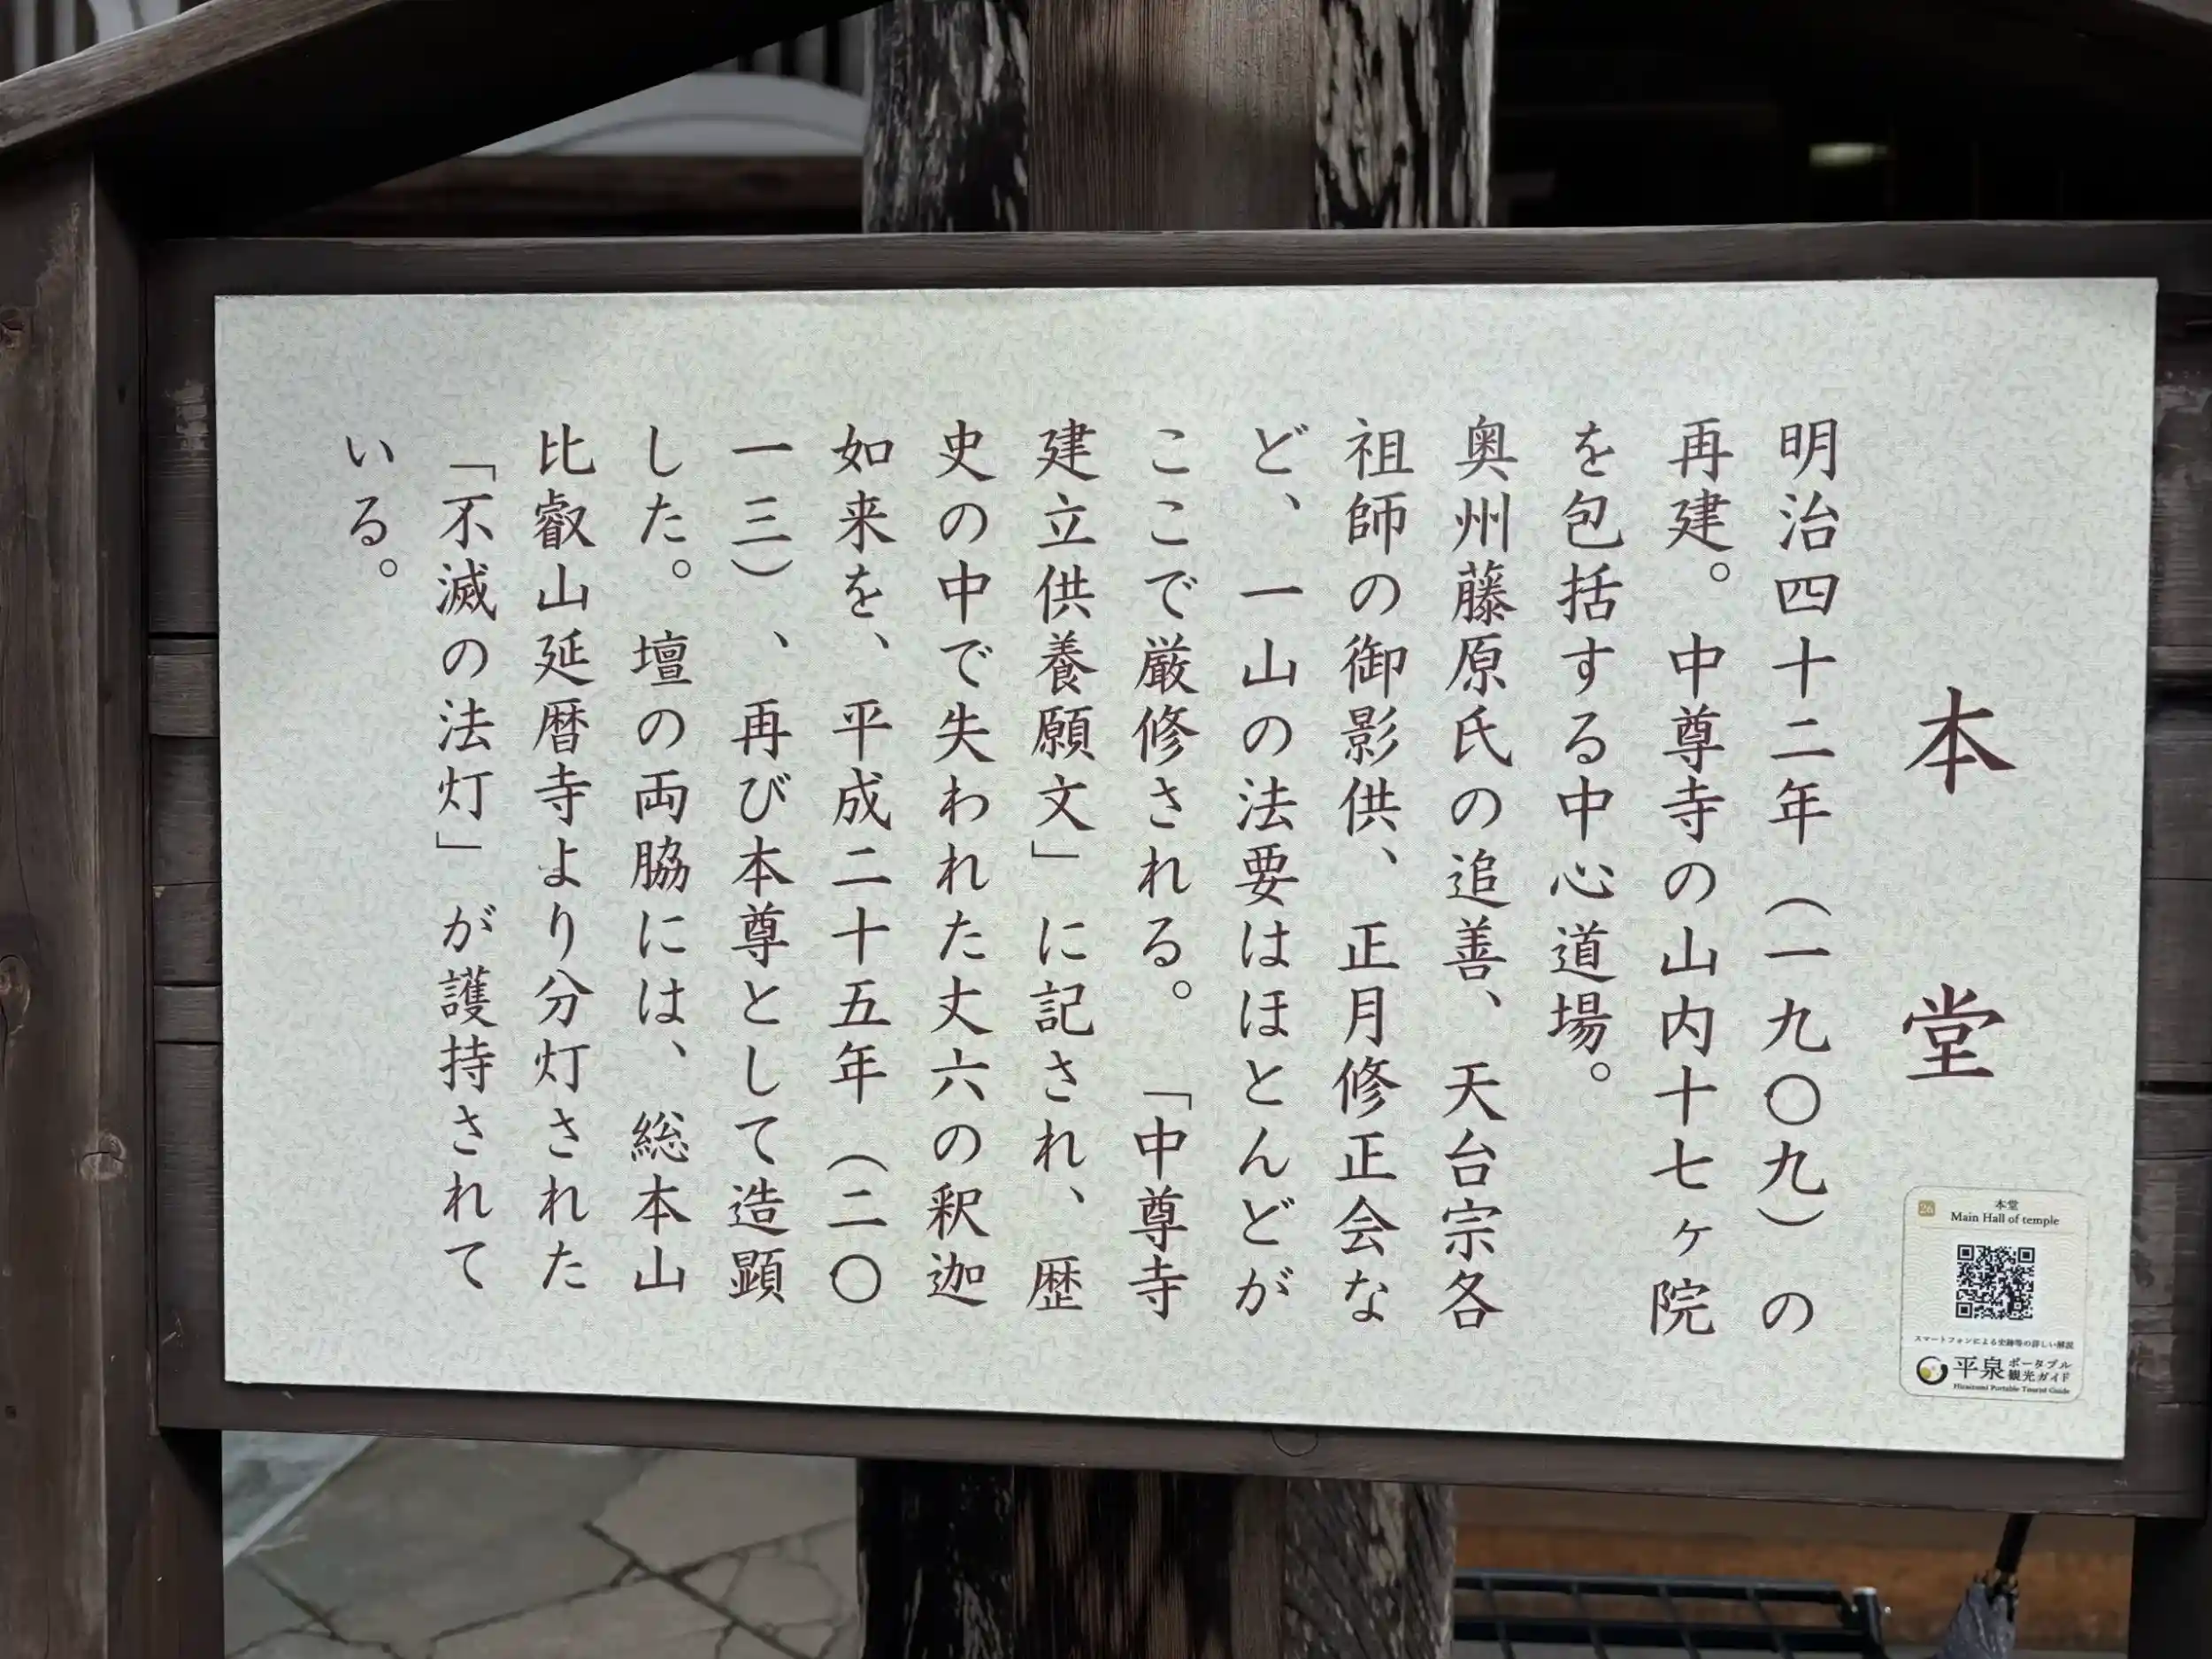 本堂
明治四十二年（一九〇九）の
再建。中尊寺の山内十七ヶ院
を包括する中心道場。
奥州藤原氏の追善、天台宗各
祖師の御影供、正月修正会な
ど、一山の法要はほとんどが
ここで厳修される。「中尊寺
建立供養願文」に記され、歴
史の中で失われた丈六の釈迦
如来を、平成二十五年（二〇
一三）、再び本尊として造顕
した。壇の両脇には、総本山
比叡山延暦寺より分灯された
「不滅の法灯」が護持されて
いる。
26
本堂
Main Hall of temple
スマートフォンによる史跡等の詳しい解説
平泉 ポータブル
観光ガイド
Hiraizumi Portable Tourist Guide